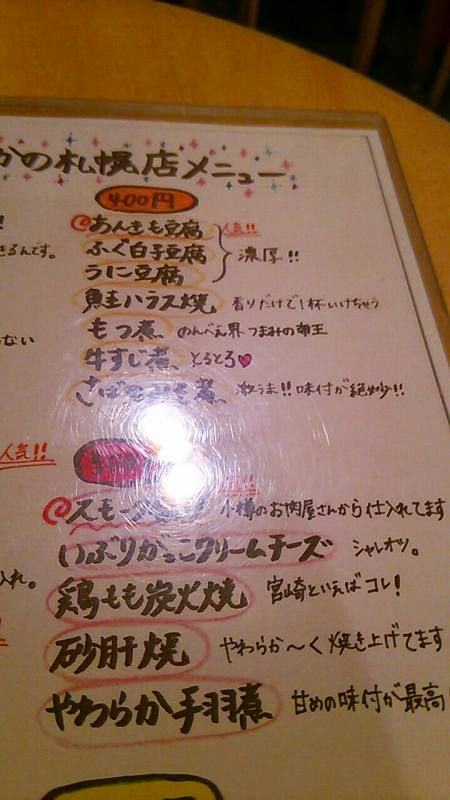 かの札幌店メニュー
400円
あんきも豆腐 人気!!
ふぐ白子豆腐 濃厚!!
うに豆腐
鮭ハラス焼 香りだけで1杯いけちゃう
もつ煮 のんべえ界つまみの帝王
牛すじ煮 とろとろ♥
さば 煮 激うま!!味付が絶妙!!
スモーク 小樽のお肉屋さんから仕入れてます
いぶりがっこクリームチーズ シャレオツ。
鶏もも炭火焼 宮崎といえばコレ!
砂肝焼 やわらか〜く焼き上げてます
やわらか手羽煮 甘めの味付が最高!
きるんです。
ない
人気!!
入れ。